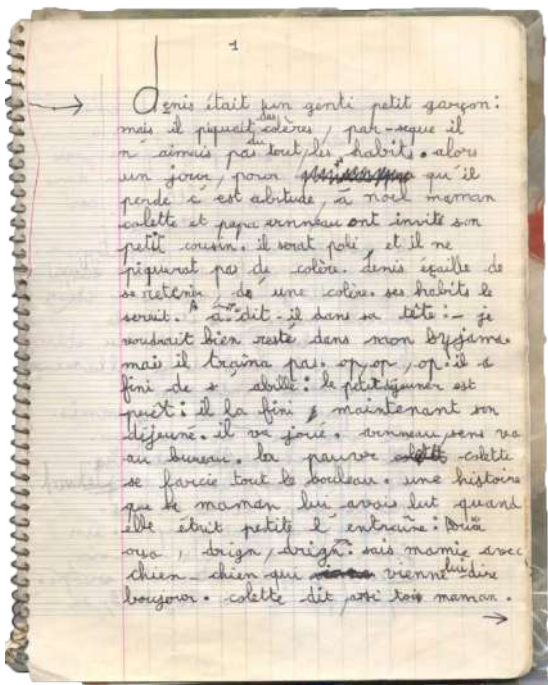 1
Denis était un genti petit garçon:
mais il piquait des colères, par-seque il
n'aimais pas du tout, les habits. alors
un jour, pour qu'il
perde c'est abitude, à noël maman
colette et papa ont invité son
petit cousin. il serat poli, et il ne
piquerat pas de colère. denis éçaille de
se retenir d'une colère. ses habits le
serait. dit-il dans sa tête: - je
voudrait bien resté dans mon byjama
mais il traîna pas. op, op, op. il a
fini de s'abillé: le petit déjeuner est
prêt: il la fini, maintenant son
déjeuné. il va joué. sens va
au bureau. la pauvre colette
se farcie tout le bouleau. une histoire
que sa maman lui avais lut quand
elle était petite l'entraine:
oua, drign, drign. sais mamie avec
chien-chien qui vienne lui dire
boujour. colette dit toi maman.